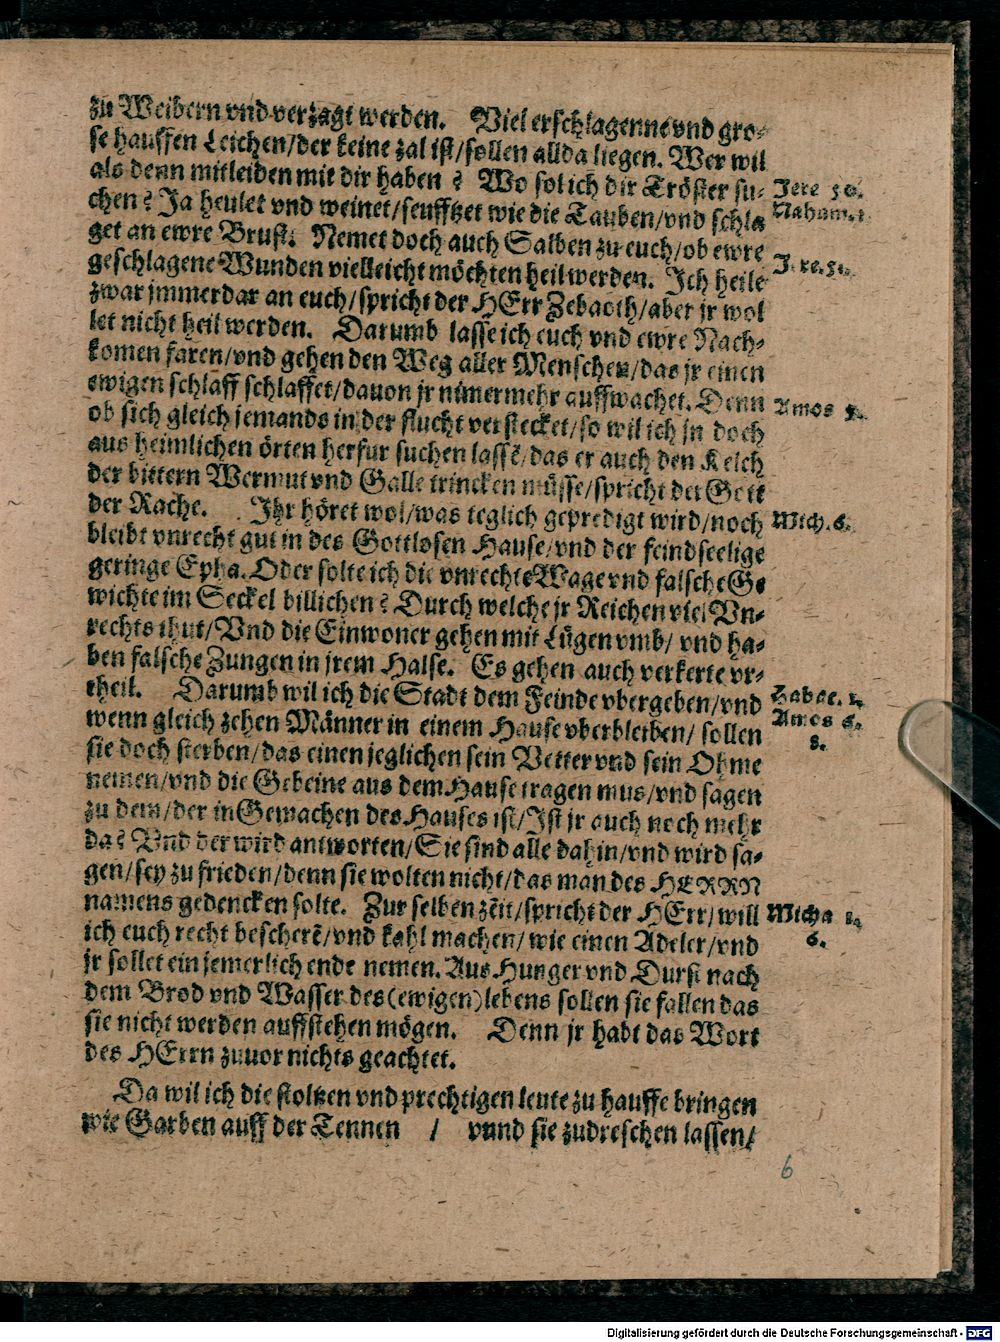 zu Weibern vnd verzagt werden. Viel erschlagenne vnd gro-
se hauffen Leichen/der keine zal ist/sollen allda liegen. Wer wil
als denn mitleiden mit dir haben ? Wo sol ich dir Tröster su-
Jere 50.
chen? Ja heulet vnd weinet/seufftzet wie die Tauben/vnd schla
Nahum.
get an ewre Brust. Nemet doch auch Salben zu euch/ob ewre
geschlagene Wunden vielleicht möchten heil werden. Ich heile
Jere.51.
zwar jmmerdar an euch/spricht der HErr Zebaoth/aber jr wol
let nicht heil werden. Darumb lasse ich euch vnd ewre Nach-
komen faren/vnd gehen den Weg aller Menschen/das jr einen
ewigen schlaff schlaffet/dauon jr nimermehr auffwachet. Denn
Amos 9.
ob sich gleich jemands in der flucht verstecket/so wil ich jn doch
aus heimlichen örten herfur suchen lassē/das er auch den Kelch
der bittern Wermut vnd Galle trincken müsse/spricht der Gott
der Rache. Ihr höret wol/was teglich gepredigt wird/noch
Mich.6.
bleibt vnrecht gut in des Gottlosen Hause/vnd der feindseelige
geringe Epha. Oder solte ich die vnrechte Wage vnd falsche Ge
wichte im Seckel billichen? Durch welche jr Reichen viel Vn-
rechts thut/Vnd die Einwoner gehen mit Lügen vmb/ vnd ha-
ben falsche Zungen in jrem Halse. Es gehen auch verkerte vr-
theil. Darumb wil ich die Stadt dem Feinde vbergeben/vnd
Habac. 1.
wenn gleich zehen Männer in einem Hause vberbleiben/ sollen
Amos 6.
8.
sie doch sterben/das einen jeglichen sein Vetter vnd sein Ohme
nemen/vnd die Gebeine aus dem Hause tragen mus/vnd sagen
zu dem/der in Gemachen des Hauses ist/Ist jr auch noch mehr
da? Vnd der wird antworten/Sie sind alle dahin/vnd wird sa-
gen/sey zu frieden/denn sie wolten nicht/das man des HERRN
namens gedencken solte. Zur selben zeit/spricht der HErr/will
Micha 1.
ich euch recht bescherē/vnd kahl machen/wie einen Adeler/vnd
6.
jr sollet ein jemerlich ende nemen. Aus Hunger vnd Durst nach
dem Brod vnd Wasser des (ewigen) lebens sollen sie fallen das
sie nicht werden auffstehen mögen. Denn jr habt das Wort
des HErrn zuuor nichts geachtet.
Da wil ich die stoltzen vnd prechtigen leute zu hauffe bringen
wie Garben auff der Tennen / vnnd sie zudreschen lassen/
6
Digitalisierung gefördert durch die Deutsche Forschungsgemeinschaft - DFG